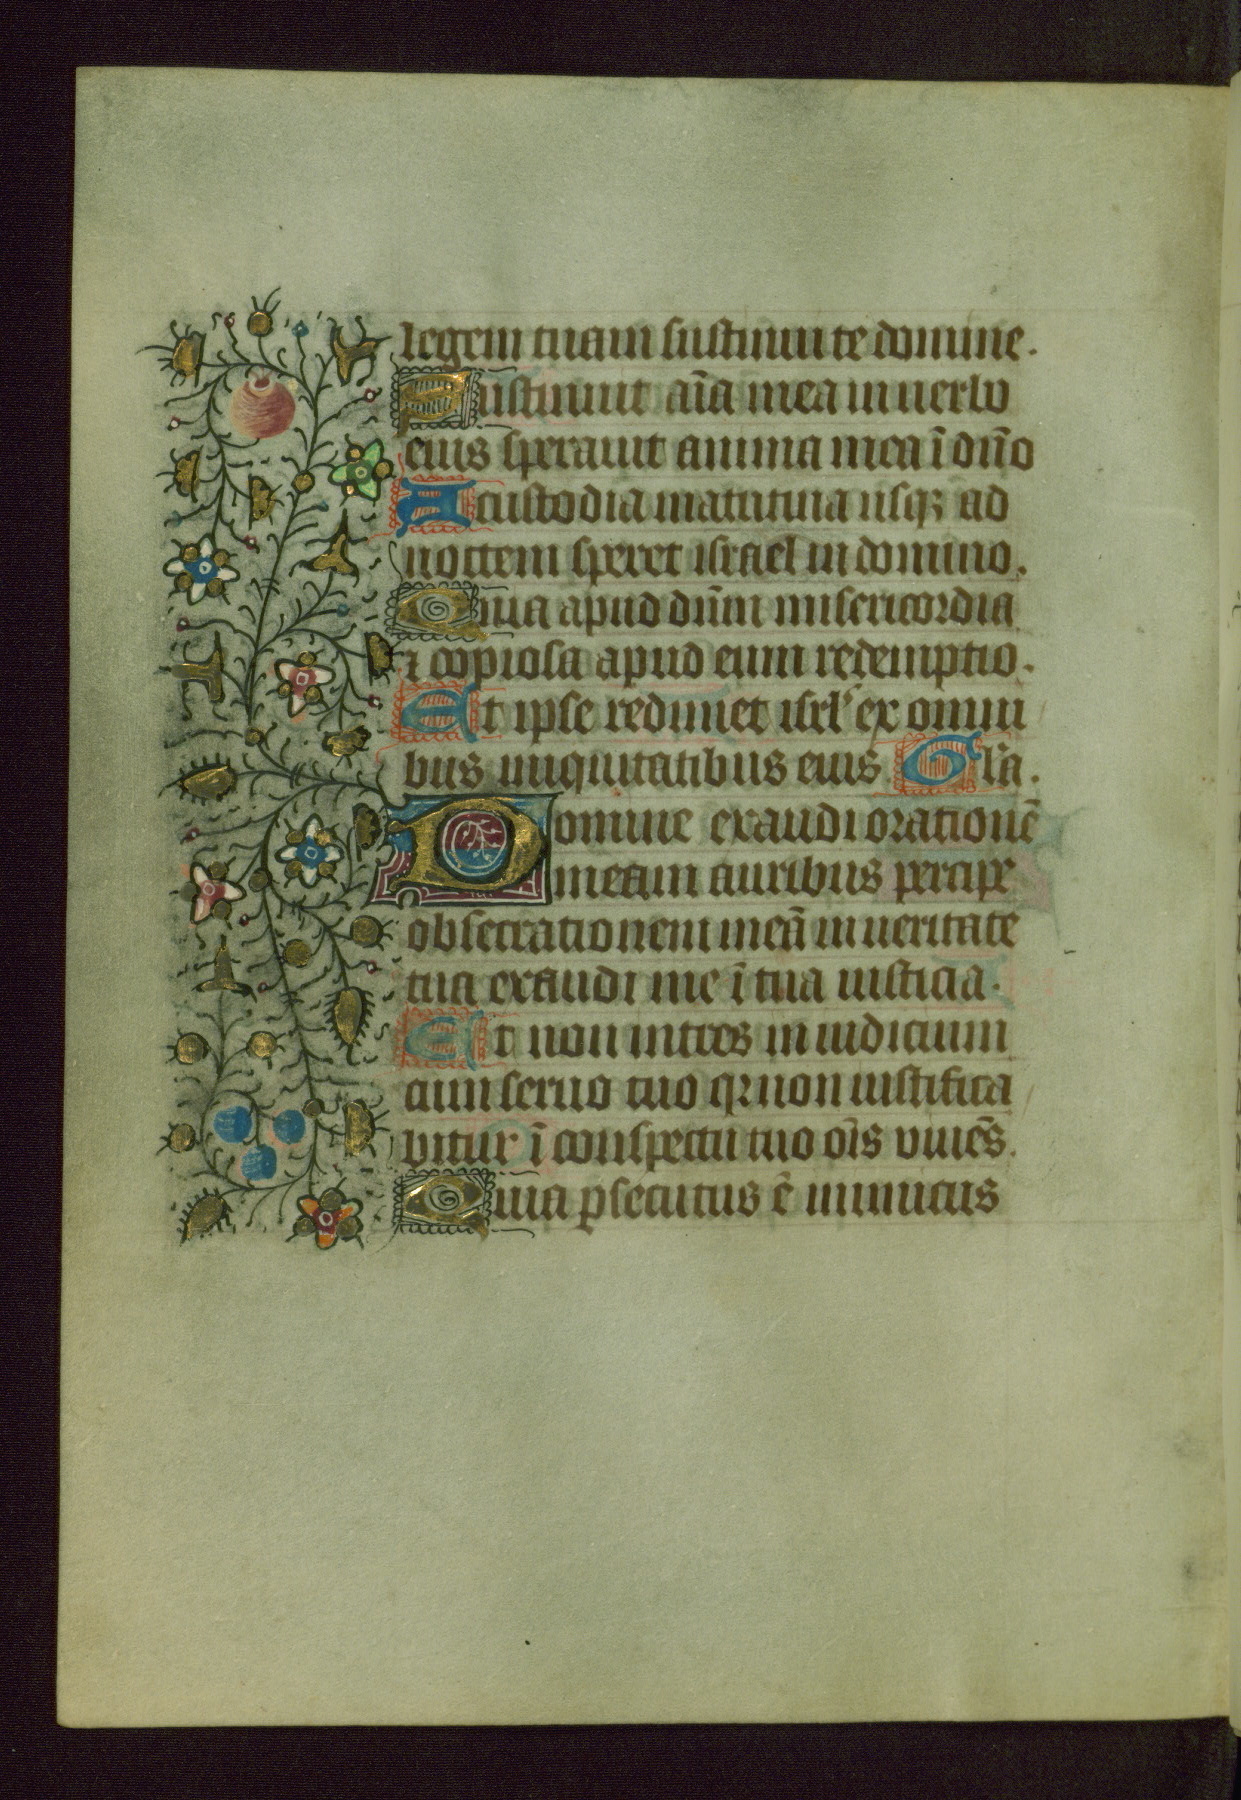 legem tuam sustinui te domine.
Sustinuit aīa mea in uerbo
eius sperauit anima mea ī dn̄o
A custodia matutina usqꝫ ad
noctem speret israel in domino.
Quia apud dn̄m misericordia
⁊ copiosa apud eum redemptio.
Et ipse redimet isrl' ex omni
bus iniquitatibus eius Gl'ia.
Domine exaudi orationē
meam auribus percipe
obsecrationem meā in ueritate
tua exaudi me ī tua iusticia.
Et non intres in iudicium
cum seruo tuo qꝛ non iustifica
bitur ī conspectu tuo oīs viuēs.
Quia ꝑsecutus ē inimicus